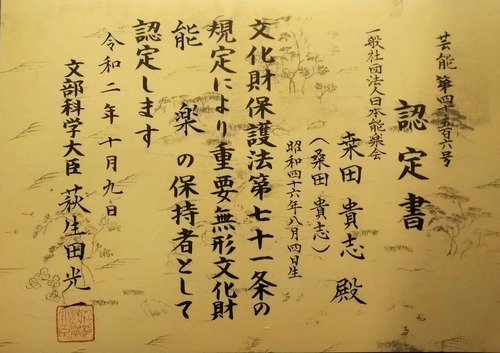 芸能第四千五百六号
認定書
一般社団法人日本能楽会
桒田貴志殿
(桑田貴志)
昭和四十六年八月四日生
文化財保護法第七十一条の
規定により重要無形文化財
能楽の保持者として
認定します
令和二年十月九日
文部科学大臣 萩生田光一